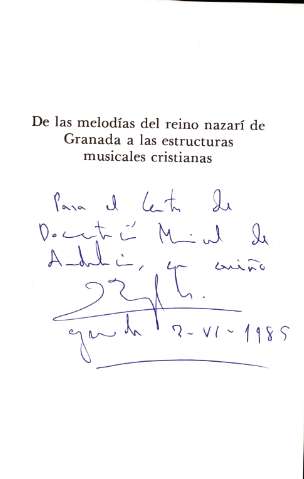 De las melodías del reino nazarí de
Granada a las estructuras
musicales cristianas
Para el Centro de
Documentación Musical de
Andalucía, con cariño
Granada 2-VI-1985